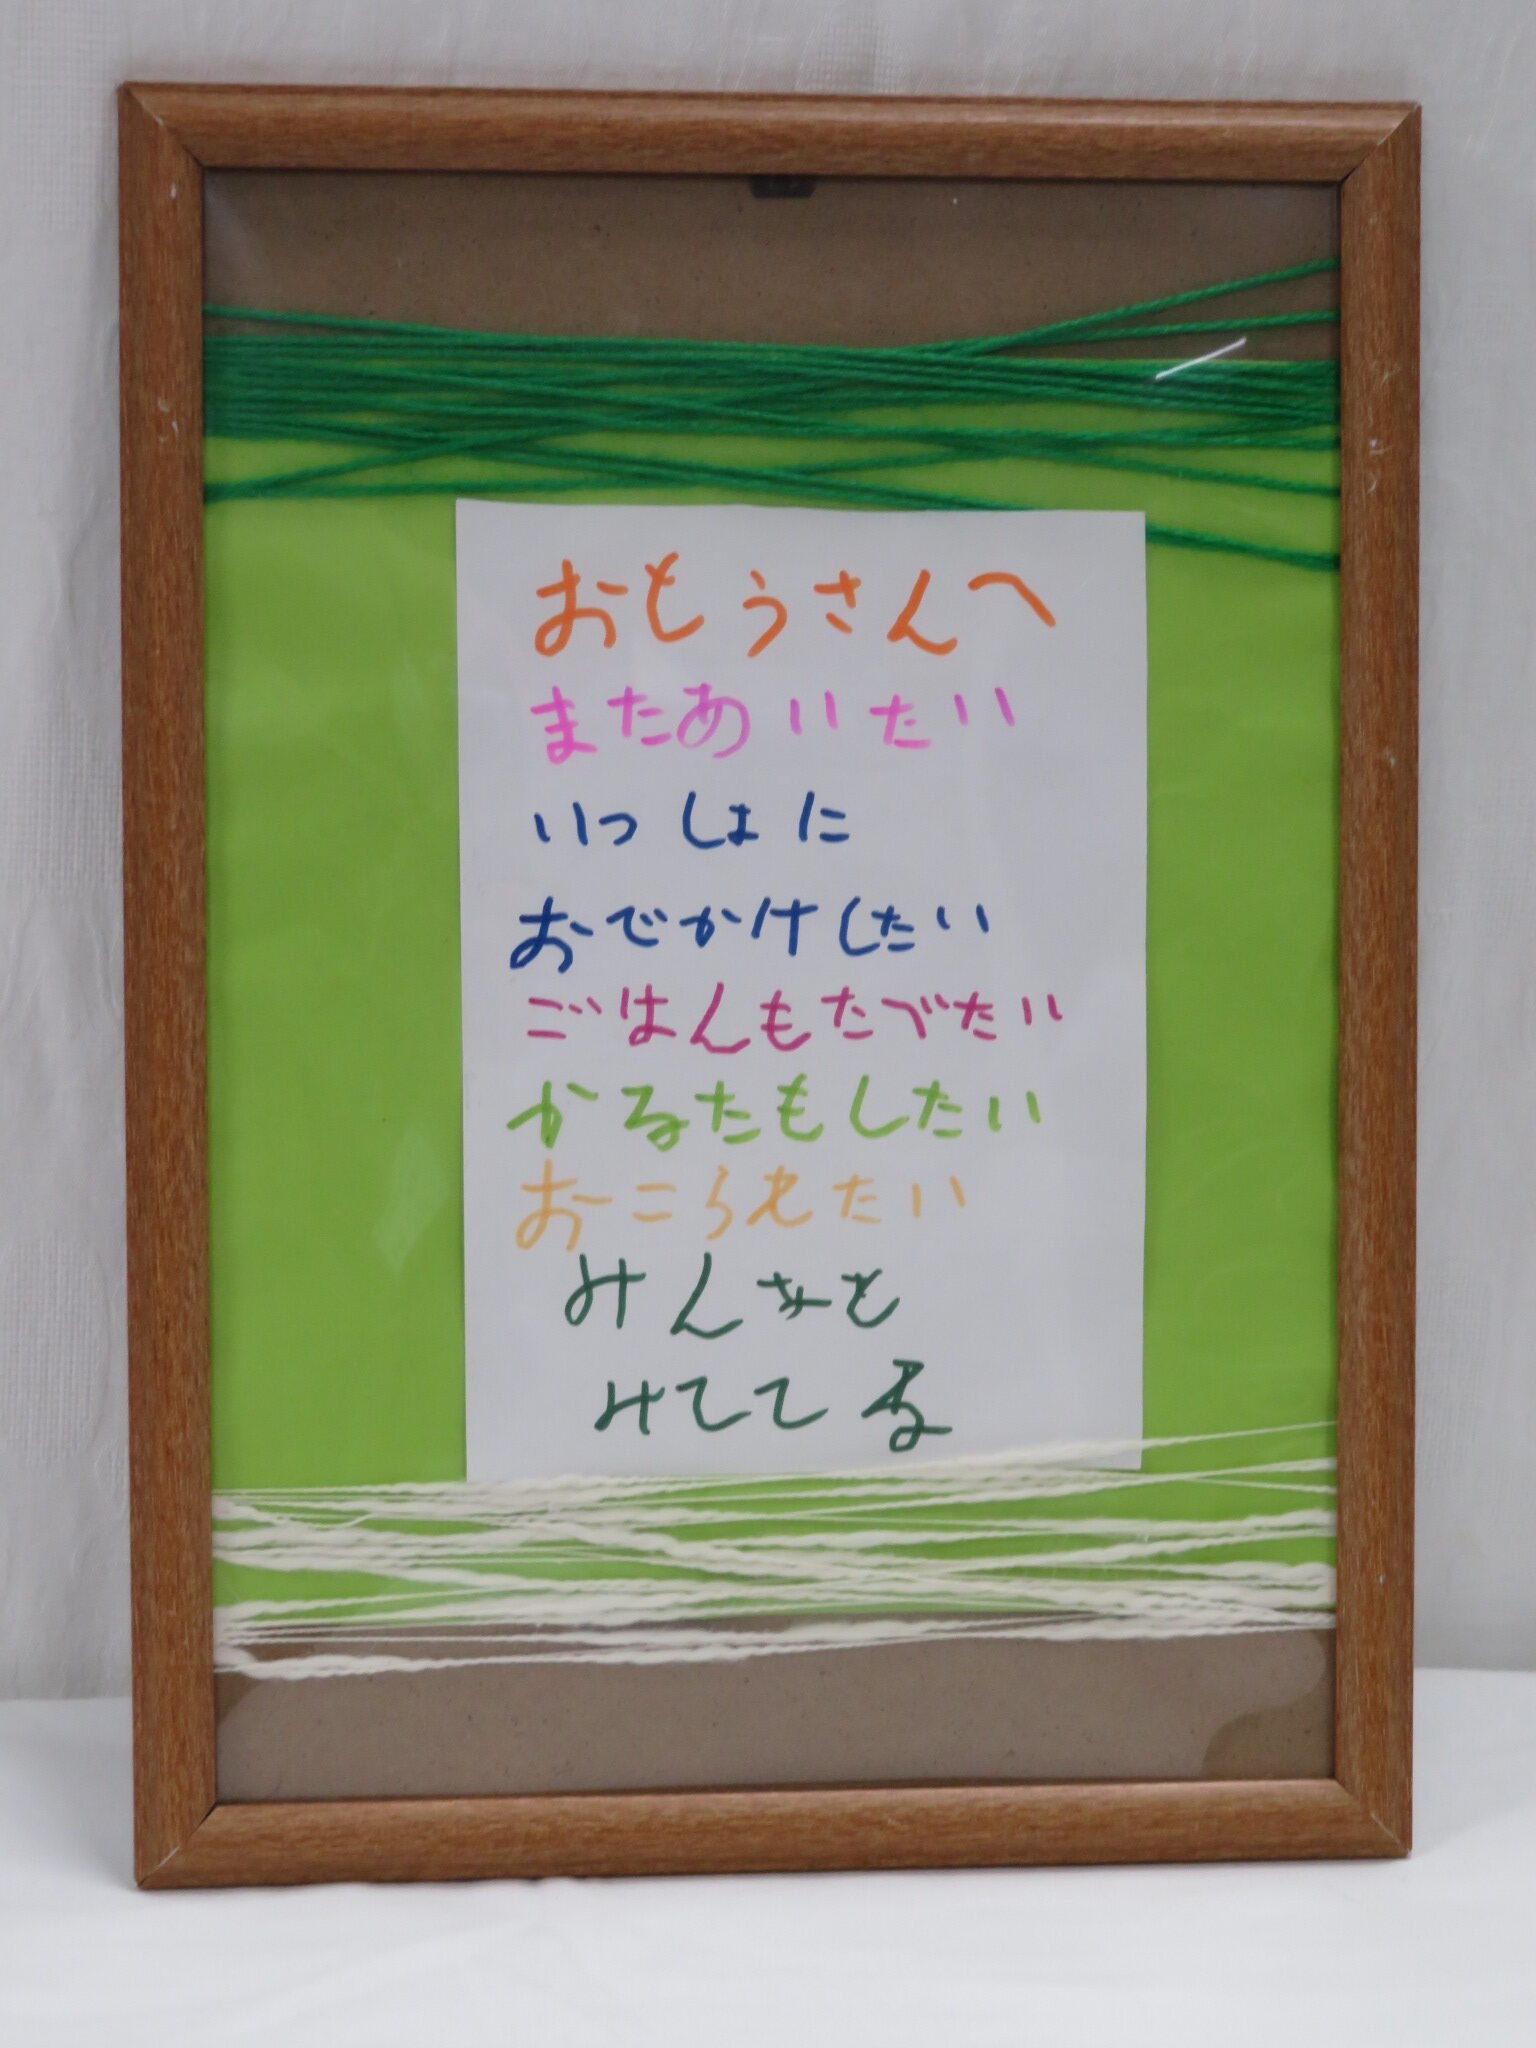 おもうさんへ
またあいたい
いっしょに
おでかけしたい
ごはんもたべたい
かるたもしたい
おこられたい
みんなを
みててる